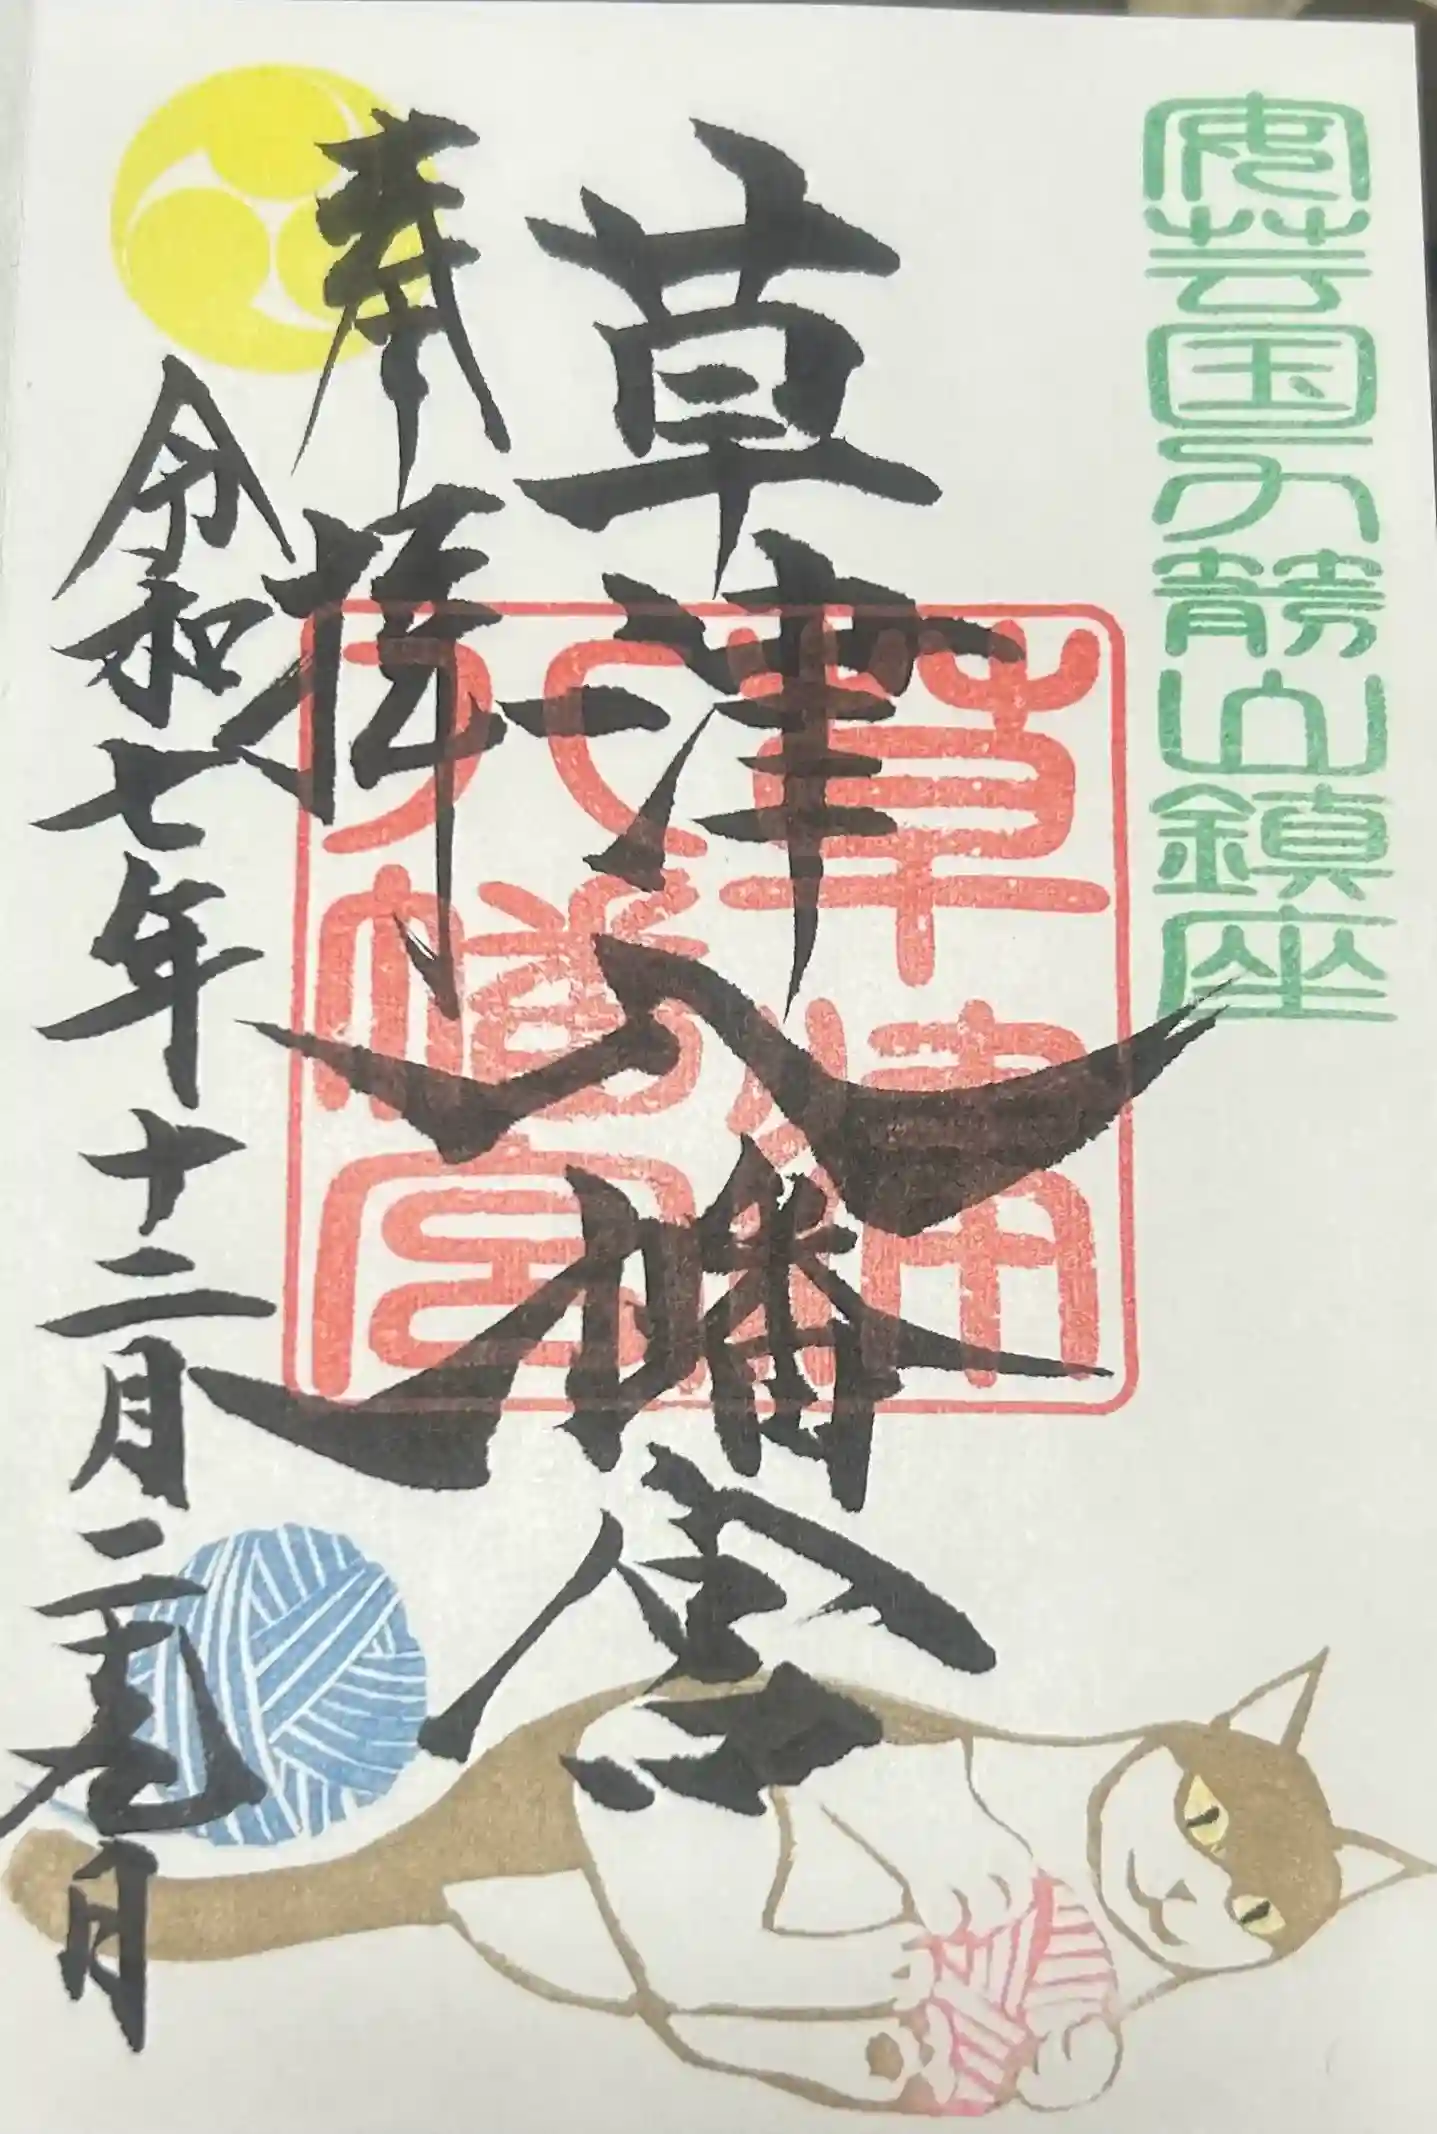 安芸国力箭山鎮座
草津八幡宮
草津
八幡宮
奉拝
令和七年十二月二十九日